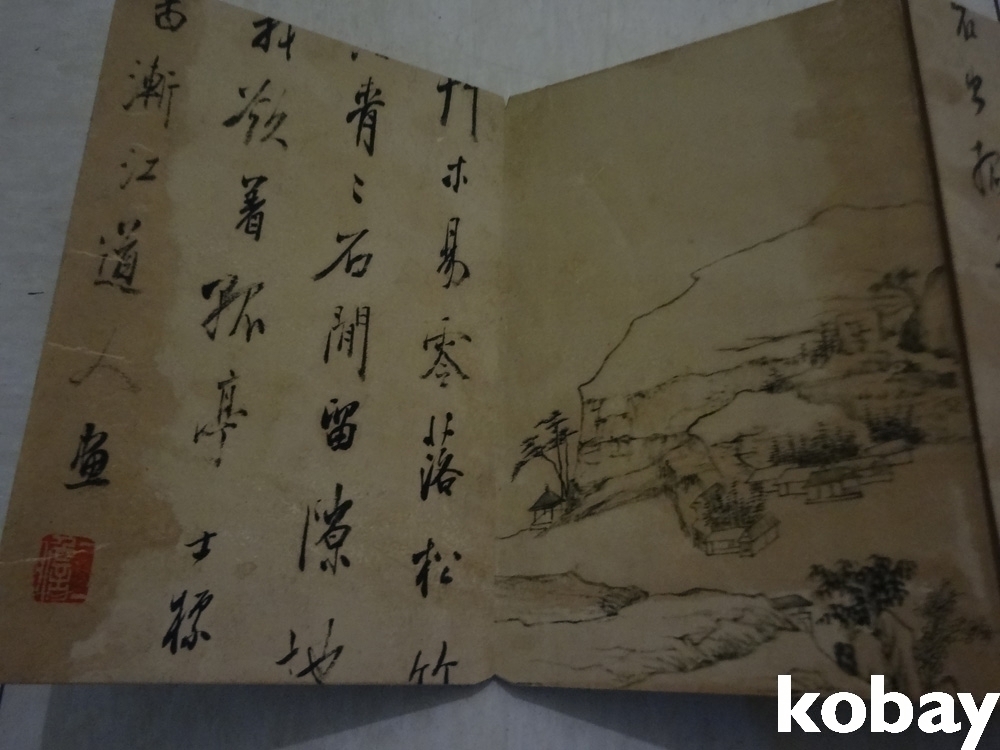 石
木易零落松竹
青〻石間留隙地
料欲着孤亭士標
漸江道人画
kobay